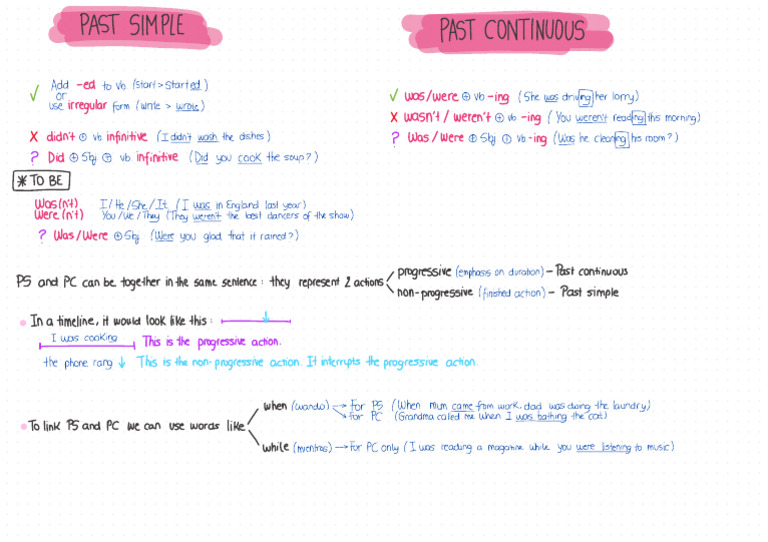 PAST SIMPLE
PAST CONTINUOUS
✓ Add -ed to vb (start > started)
or
use irregular form (write > wrote)
✗ didn't ⊕ vb infinitive (I didn't wash the dishes)
? Did ⊕ Sbj ⊕ vb infinitive (Did you cook the soup?)
✓ was/were ⊕ vb -ing (She was driving her lorry)
✗ wasn't / weren't ⊕ vb -ing (You weren't reading this morning)
? Was / were ⊕ Sbj ⊕ vb -ing (Was he cleaning his room?)
* TO BE
Was(n't) I/He/She/It (I was in England last year)
Were(n't) You/We/They (They weren't the best dancers of the show)
? Was/Were ⊕ Sbj (Were you glad that it rained?)
PS and PC can be together in the same sentence: they represent 2 actions
progressive (emphasis on duration) – Past continuous
non-progressive (finished action) – Past simple
In a timeline, it would look like this:
I was cooking This is the progressive action.
the phone rang ↓ This is the non-progressive action. It interrupts the progressive action.
To link PS and PC we can use words like
when (cuando) → For PS (When mum came from work, dad was doing the laundry)
→ For PC (Grandma called me when I was bathing the cat)
while (mientras) → For PC only (I was reading a magazine while you were listening to music)